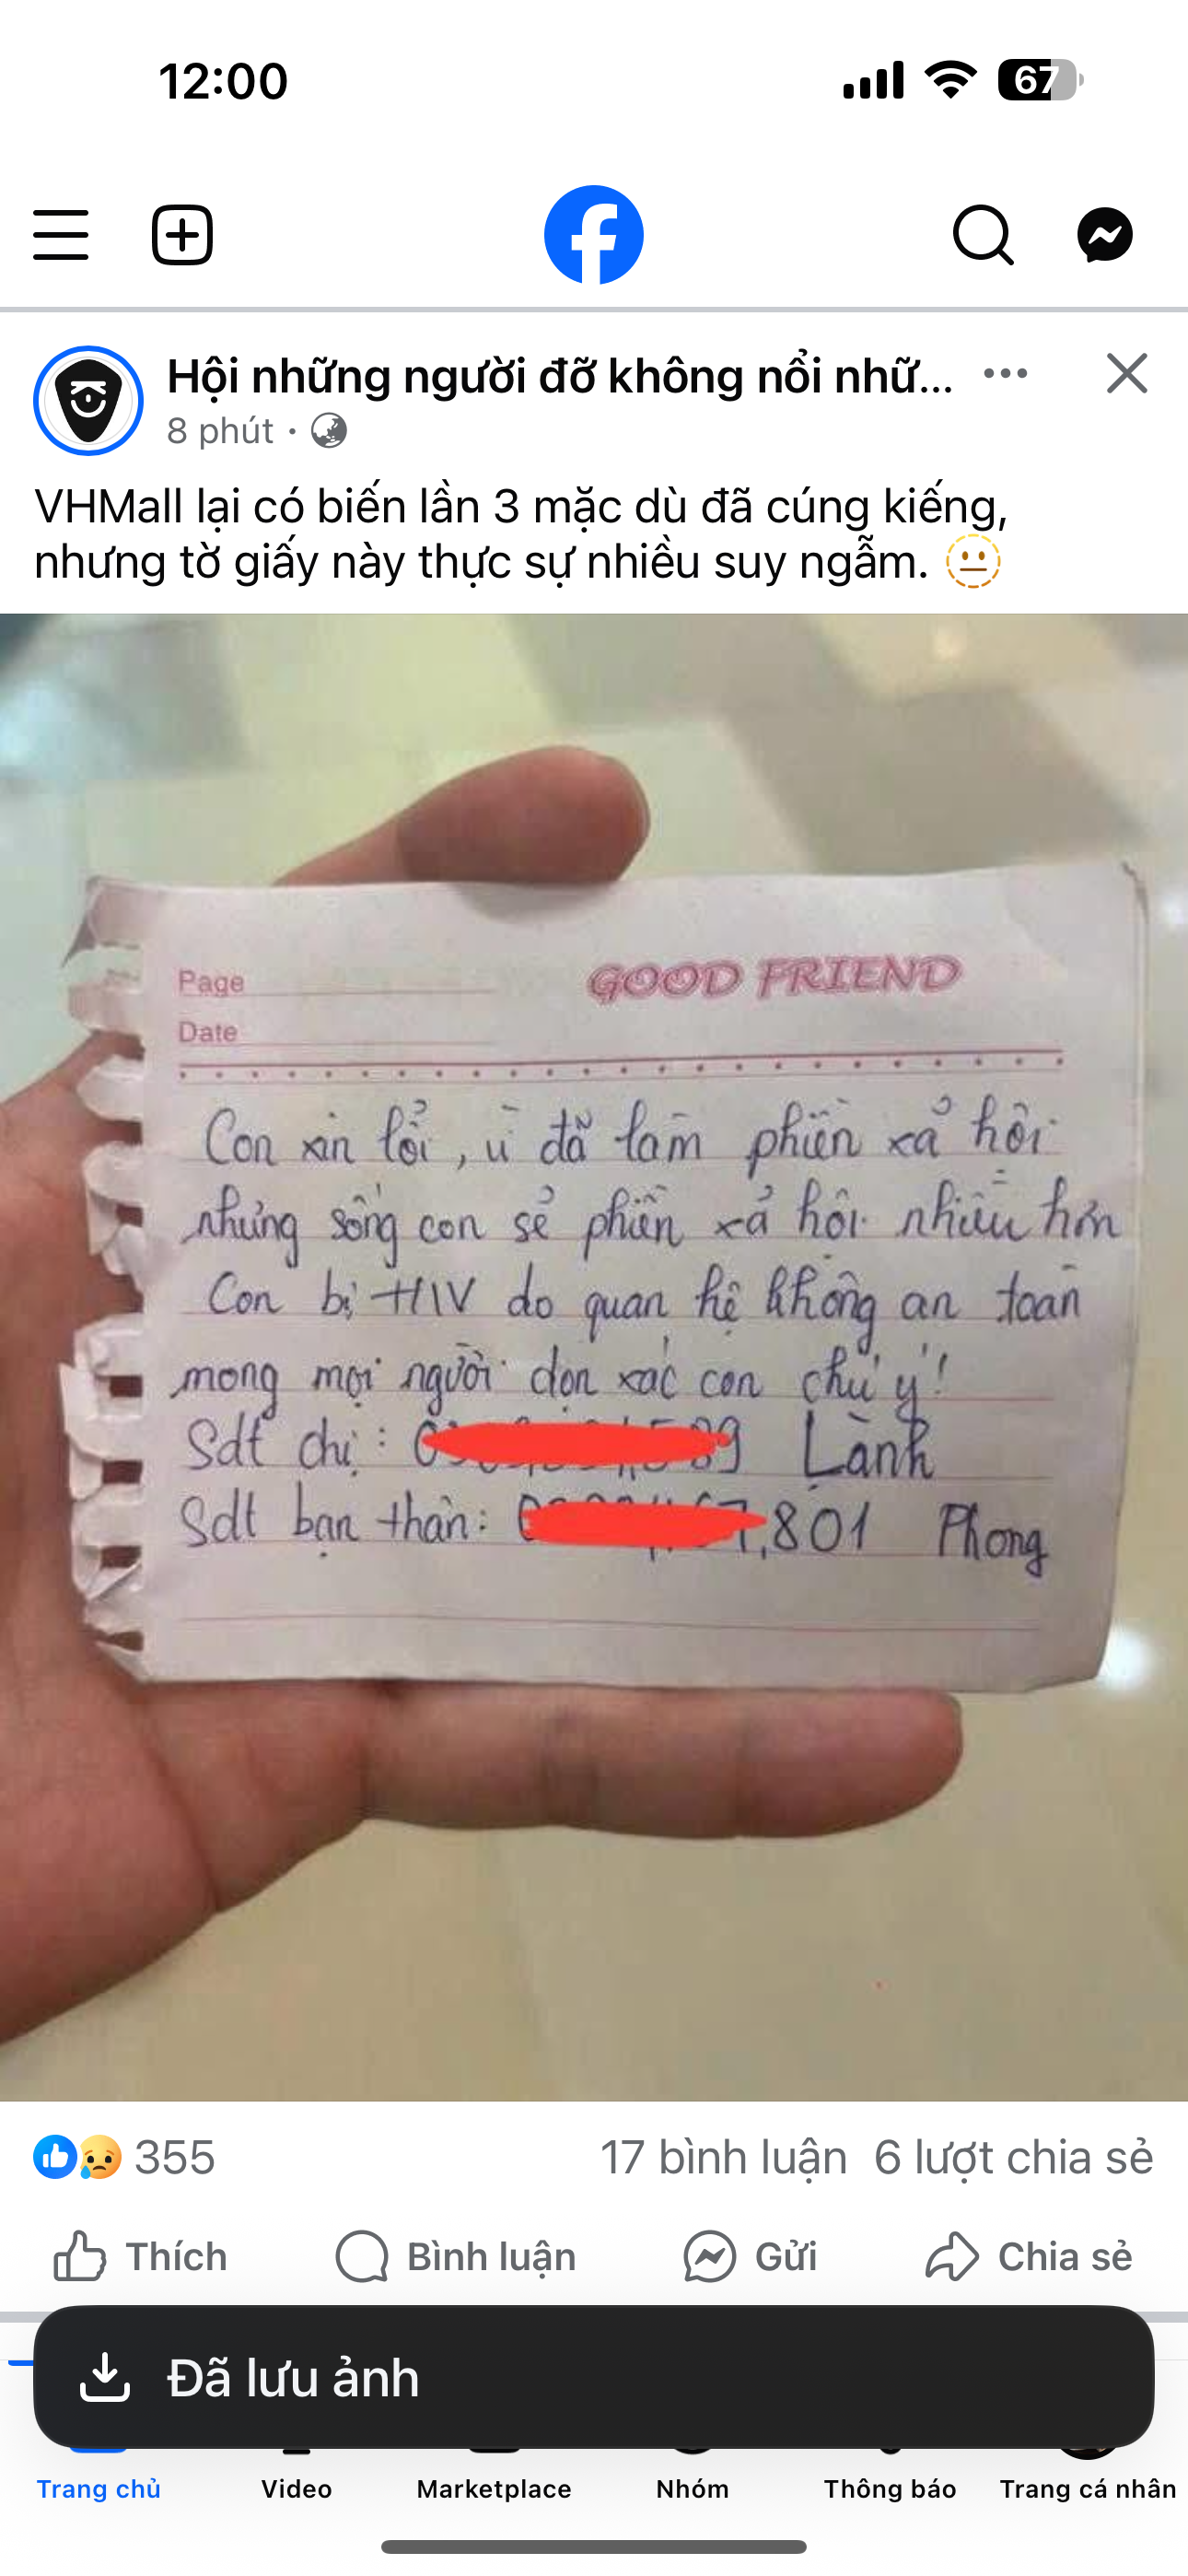 12:00
67
Hội những người đỡ không nổi nhữ...
8 phút
VHMall lại có biến lần 3 mặc dù đã cúng kiếng,
nhưng tờ giấy này thực sự nhiều suy ngẫm.
Page
GOOD FRIEND
Date
Con xin lổi, vì đã làm phiền xả hội
nhưng sống con sẻ phiền xả hội nhiều hơn
Con bị HIV do quan hệ không an toàn
mong mọi người dọn xác con chú ý!
Sdt chị: Lành
Sdt bạn thân: 801 Phong
355
17 bình luận 6 lượt chia sẻ
Thích
Bình luận
Gửi
Chia sẻ
Đã lưu ảnh
Trang chủ
Video
Marketplace
Nhóm
Thông báo
Trang cá nhân